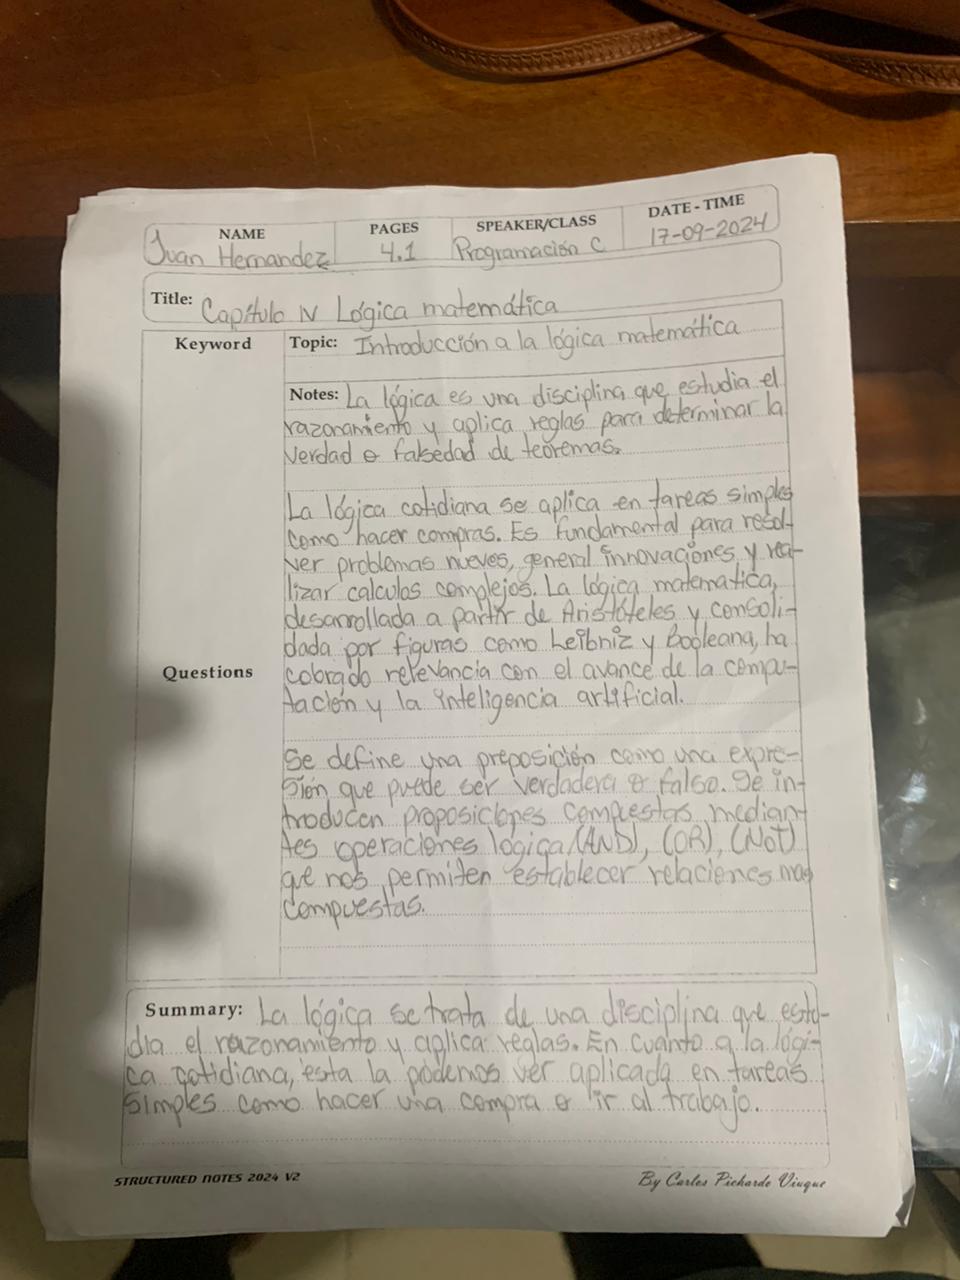 NAME PAGES SPEAKER/CLASS DATE - TIME
Juan Hernandez 4.1 Programación C 17-09-2024
Title: Capítulo IV Lógica matemática
Keyword
Topic: Introducción a la lógica matemática
Notes: La lógica es una disciplina que estudia el
razonamiento y aplica reglas para determinar la
verdad o falsedad de teoremas.
La lógica cotidiana se aplica en tareas simples
como hacer compras. Es fundamental para resol-
ver problemas nuevos, general innovaciones y rea-
lizar calculos complejos. La lógica matematica,
desarrollada a partir de Aristóteles y consoli-
dada por figuras como Leibniz y Booleana, ha
Questions
cobrado relevancia con el avance de la compu-
tación y la inteligencia artificial.
Se define una preposición como una expre-
sión que puede ser verdadera o falso. Se in-
troducen proposiciones compuestas median-
tes operaciones lógica (AND), (OR), (NOT)
que nos permiten establecer relaciones mas
compuestas.
Summary: La lógica se trata de una disciplina que estu-
dia el razonamiento y aplica reglas. En cuanto a la lógi-
ca cotidiana, esta la podemos ver aplicada en tareas
simples como hacer una compra o ir al trabajo.
STRUCTURED NOTES 2024 V2
By Carlos Pichardo Viuque